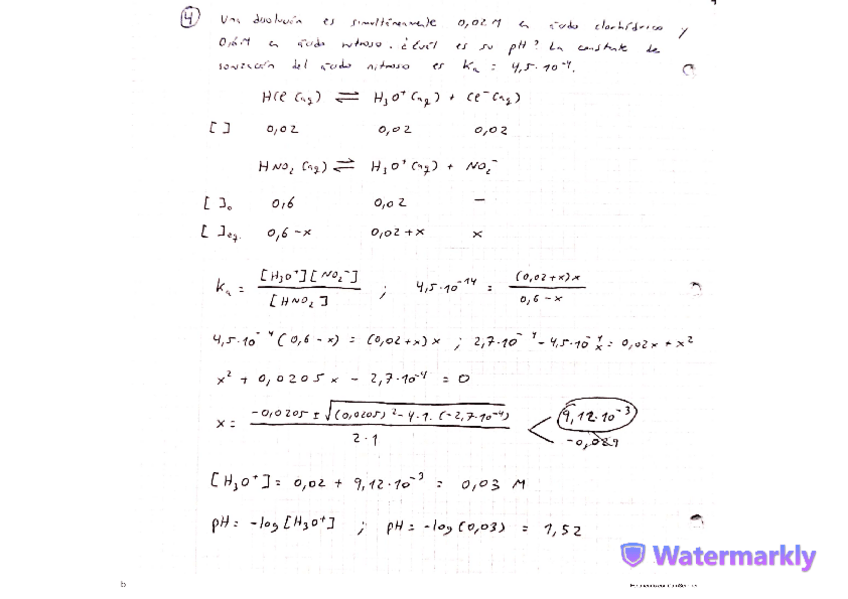 ④ Una disolución es simultáneamente 0,02 M en ácido clorhídrico y
0,6 M en ácido nitroso. ¿Cuál es su pH? La constante de
ionización del ácido nitroso es Ka = 4,5·10⁻⁴.
HCl (aq) ⇌ H₃O⁺ (aq) + Cl⁻ (aq)
[ ] 0,02 0,02 0,02
HNO₂ (aq) ⇌ H₃O⁺ (aq) + NO₂⁻
[ ]₀ 0,6 0,02 —
[ ]eq. 0,6-x 0,02+x x
Ka = [H₃O⁺][NO₂⁻] / [HNO₂] ; 4,5·10⁻¹⁴ = (0,02+x)x / 0,6-x
4,5·10⁻⁴ (0,6-x) = (0,02+x)x ; 2,7·10⁻⁴ - 4,5·10⁻⁴x = 0,02x + x²
x² + 0,0205x - 2,7·10⁻⁴ = 0
x = -0,0205 ± √(0,0205)² - 4·1·(-2,7·10⁻⁴) / 2·1 < 9,12·10⁻³
-0,029
[H₃O⁺] = 0,02 + 9,12·10⁻³ = 0,03 M
pH = -log [H₃O⁺] ; pH = -log (0,03) = 1,52
Watermarkly
b